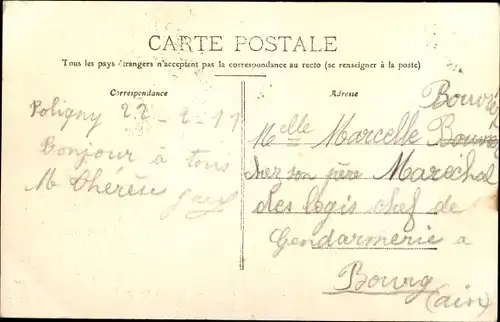 CARTE POSTALE
Tous les pays étrangers n'acceptent pas la correspondance au recto (se renseigner à la poste)
Correspondance
Adresse
Poligny 22-2-11
Bonjour à tous
M Thérèse
Melle Marcelle
chez son père Maréchal
des logis chef de
Gendarmerie a
Bourg
(ain)